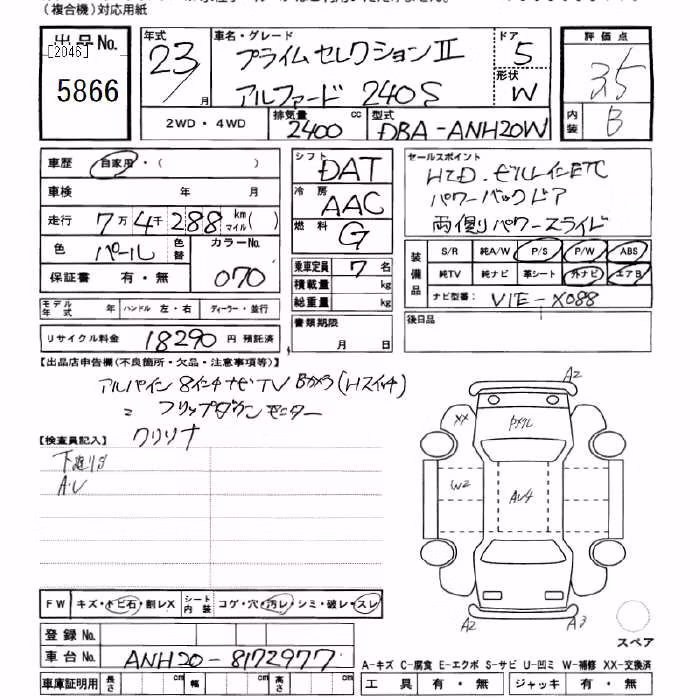 (複合機)対応用紙
出品No.
[2046]
5866
年式
23
月
車名・グレード
プライムセレクションⅡ
アルファード 240S
ドア
5
形状
W
評価点
3.5
内装
B
2WD・4WD
排気量
2400 cc
型式
DBA-ANH20W
車歴 自家用・( )
車検 年 月
走行 7万4千288 km マイル( )
色 パール 色替 カラーNo. 070
保証書 有・無
モデル年式 年 ハンドル 左・右 ディーラー・並行
リサイクル料金 18290 円 預託済
シフト DAT
冷房 AAC
燃料 G
乗車定員 7 名
積載量 kg
総重量 kg
書類期限
月 日
セールスポイント
HID.ビルトインETC
パワーバックドア
両側パワースライド
装備品
S/R 純A/W P/S P/W ABS
純TV 純ナビ 革シート 外ナビ エアB
ナビ型番: VIE-X088
後日品
【出品店申告欄(不良箇所・欠品・注意事項等)】
アルパイン 8インチナビTV Bカメラ(Hスイッチ)
〃 フリップダウンモニター
ワリリナ
【検査員記入】
下廻りS
A.U
A2
XX
W2
AU4
A2
A3
スペア
FW キズ・トビ石・割レX シート内装 コゲ・穴・汚レ・シミ・破レ・スレ
登録No.
車台No. ANH20-8172977
車庫証明用 長さ cm 幅 cm 高さ cm
A-キズ C-腐食 E-エクボ S-サビ U-凹ミ W-補修 XX-交換済
工具 有・無 ジャッキ 有・無